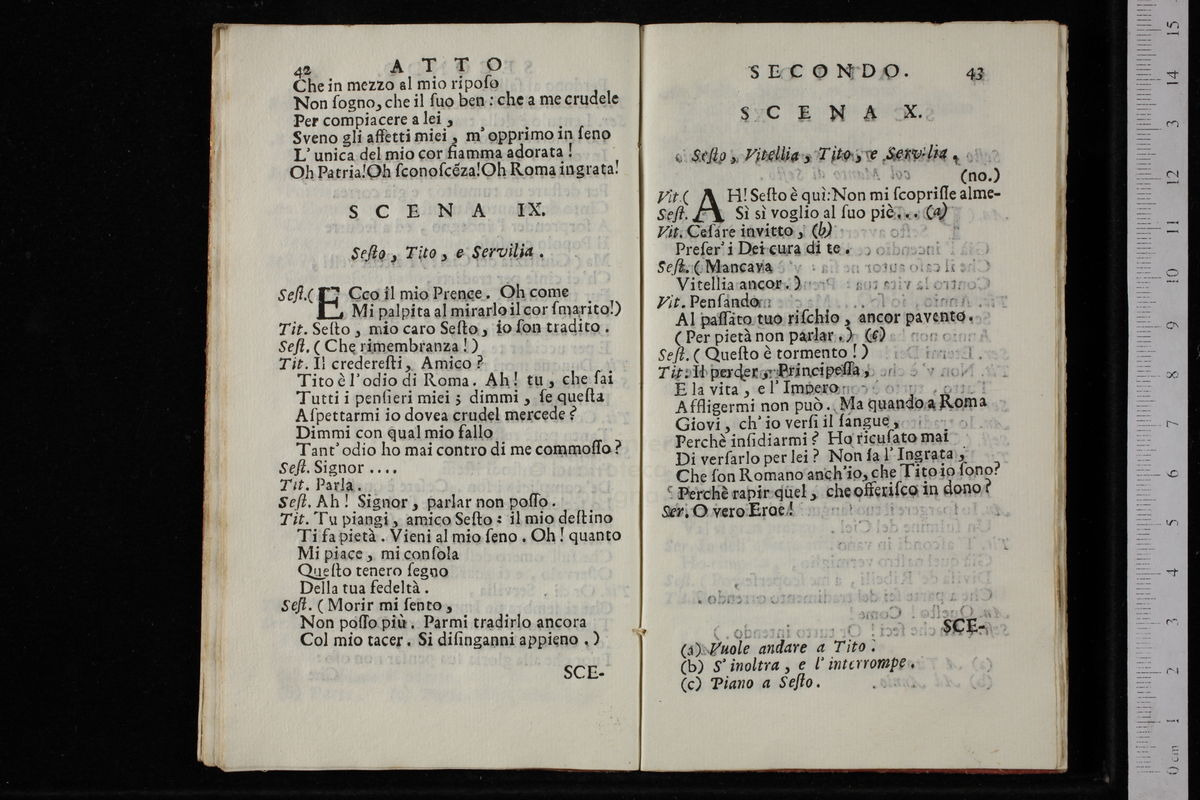 42 ATTO
Che in mezzo al mio ripoſo
Non ſogno, che il ſuo ben : che a me crudele
Per compiacere a lei ,
Sveno gli affetti miei , m' opprimo in ſeno
L' unica del mio cor fiamma adorata !
Oh Patria!Oh ſconoſcẽza!Oh Roma ingrata!
SCENA IX.
Seſto , Tito , e Servilia .
Seſt.( ECco il mio Prence . Oh come
Mi palpita al mirarlo il cor ſmarito!)
Tit. Seſto , mio caro Seſto , io ſon tradito .
Seſt. ( Che rimembranza ! )
Tit. Il credereſti , Amico ?
Tito è l' odio di Roma . Ah ! tu , che ſai
Tutti i penſieri miei ; dimmi , ſe queſta
Aſpettarmi io dovea crudel mercede ?
Dimmi con qual mio fallo
Tant' odio ho mai contro di me commoſſo ?
Seſt. Signor ....
Tit. Parla .
Seſt. Ah ! Signor , parlar non poſſo .
Tit. Tu piangi , amico Seſto : il mio deſtino
Ti fa pietà . Vieni al mio ſeno . Oh ! quanto
Mi piace , mi conſola
Queſto tenero ſegno
Della tua fedeltà .
Seſt. ( Morir mi ſento ,
Non poſſo più . Parmi tradirlo ancora
Col mio tacer . Si diſinganni appieno . )
SCE-
SECONDO. 43
SCENA X.
Seſto , Vitellia , Tito , e Servilia .
(no.)
Vit.( AH! Seſto è quì:Non mi ſcopriſſe alme-
Seſt. Sì sì voglio al ſuo piè ... (a)
Vit. Ceſare invitto , (b)
Preſer' i Dei cura di te .
Seſt. ( Mancava
Vitellia ancor . )
Vit. Penſando
Al paſſato tuo riſchio , ancor pavento .
( Per pietà non parlar . ) (c)
Seſt. ( Queſto è tormento ! )
Tit. Il perder , Principeſſa ,
E la vita , e l' Impero
Affligermi non può . Ma quando a Roma
Giovi , ch' io verſi il ſangue ,
Perchè inſidiarmi ? Ho ricuſato mai
Di verſarlo per lei ? Non ſa l' Ingrata ,
Che ſon Romano anch'io, che Tito io ſono?
Perchè rapir quel , che offeriſco in dono ?
Ser. O vero Eroe !
SCE-
(a) Vuole andare a Tito .
(b) S' inoltra , e l' interrompe .
(c) Piano a Seſto .
0 cm 1 2 3 4 5 6 7 8 9 10 11 12 13 14 15